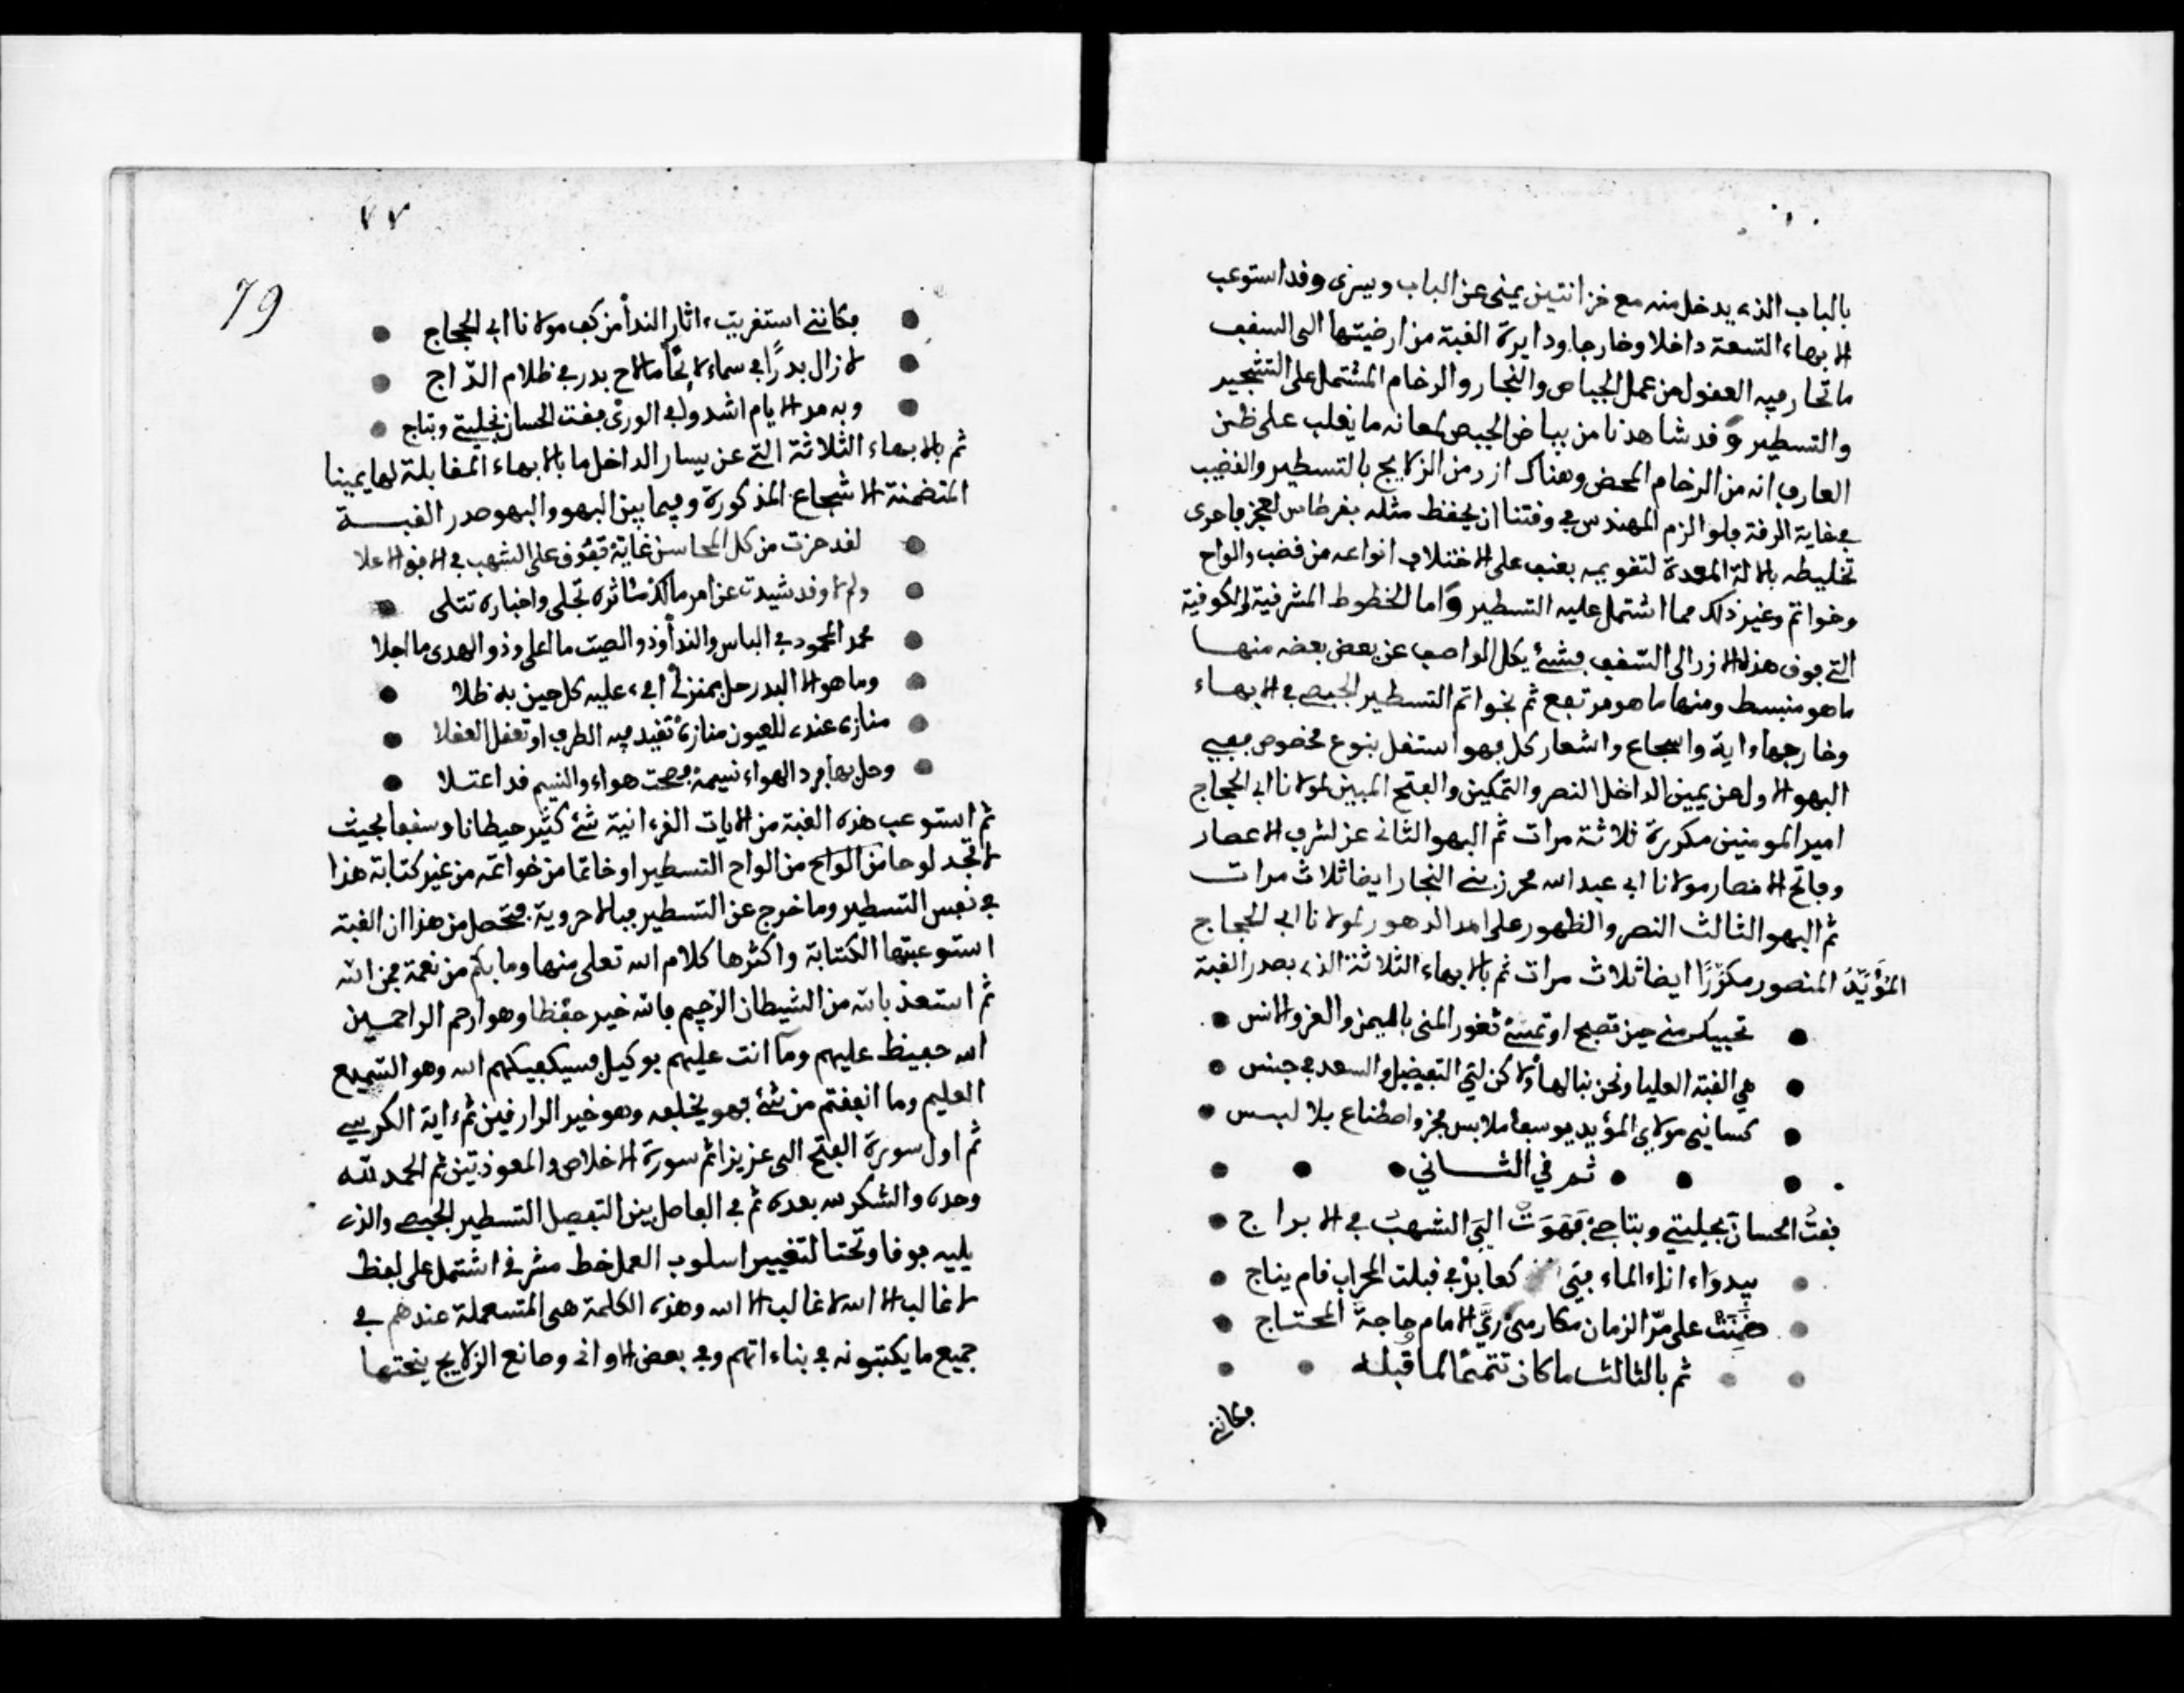 بالباب الذى يدخل منه مع خزانتين يمنى عن الباب ويسرى وقد استوعب
الابهاء التسعة داخلا وخارجا ودايرة القبة من ارضيتها الى السقف
ما تحار فيه العقول من عمل الجباص والنجار والرخام المشتمل على التشجير
والتسطير وقد شاهدنا من بياض الجبص لمعانه ما يغلب على ظن
العارف انه من الرخام المحض وهناك ازر من الزلايج بالتسطير والقضيب
في غاية الرقة فلو الزم المهندس في وقتنا ان يحفظ مثله بقرطاس لعجز فاحرى
تخليطه بالالة المعدة لتقويمه يعنف على اختلاف انواعه من قضب والواح
وخواتم وغير ذلك مما اشتمل عليه التسطير واما الخطوط المشرقية والكوفية
التي فوق هذه الازر الى السقف فشئ يكل الواصف عن بعض بعضه منها
ما هو منبسط ومنها ما هو مرتفع ثم بخواتم التسطير الجبصي في الابهاء
وخارجها ءاية واسجاع واشعار كل بهو استقل بنوع مخصوص ففي
البهو الاول عن يمين الداخل النصر والتمكين والفتح المبين لمولانا ابي الحجاج
امير المومنين مكررة ثلاثة مرات ثم البهو الثاني عز لشرف الاعصار
وفاتح الامصار مولانا ابي عبد الله محرز بني النجار ايضا ثلاث مرات
ثم البهو الثالث النصر والظهور على امد الدهور لمولانا ابي الحجاج
المُؤَيَّدُ المنصور مكرّرًا ايضا ثلاث مرات ثم بالابهاء الثلاثة الذى بصدر القبة
تحييك مني حين تصبح او تمسئ ثغور المنى باليمن والعز والانس
هي القبة العليا ونحن بناتها ولاكن لي التفضيل والسعد في جنس
كساني مولاي المؤيد يوسف ملابس فخر واصطناع بلا لبس
ثم في الثاني
فقتُ الحسان بحليتي وبتاجي فَهَوَتْ اليَّ الشهبُ في الابراج
يبدو اناء الماء في كعابد في قبلة المحراب قام يناج
ضَمِنَتْ على مرّ الزمان مكارمي ريَّ الاوام وحاجةَ المحتاج
ثم بالثالث ما كان تتميمًا لما قبله
فكانني
٧٧
79
فكانني استقريت ءاثار الندا من كف مولانا ابي الحجاج
لا زال بدرًا في سماءى لائحًا ما لاح بدر في ظلام الدّاج
وبه مد الايام اشدو في الورى فقت الحسان بحليتي وبتاج
ثم بالابهاء الثلاثة التي عن يسار الداخل ما بالابهاء المقابلة لها يمينا
المتضمنة الاشجاع المذكورة وفيما بين البهو والبهو صدر القبة
لقد حزت من كل المحاسن غاية تفوق على الشهب في الافق الاعلا
ولم لا وقد شيدت عن امر مالك مئاثره تجلى واخباره تتلى
محمد المحمود في الباس والندا وذو الصيت ما اعلى وذو الهدى ما اجلا
وما هو الا البدر حل بمنزلي افىء عليه كل حين به ظلا
منازى عندى للعيون منازه تقيد فيه الطرف او تعقل العقلا
وحل بها برد الهواء نسيمه فصحت هواء والنسيم قد اعتلا
ثم استوعب هذه القبة من الايات القرءانية شئ كثير حيطانا وسقفا بحيث
لا تجد لوحا من الواح من الواح التسطير او خاتما من خواتمه من غير كتابة هذا
في نفس التسطير وما خرج عن التسطير فبالاحروية فتحصل من هذا ان القبة
استوعبتها الكتابة واكثرها كلام الله تعلى منها وما بكم من نعمة فمن الله
ثم استعذ بالله من الشيطان الرّجيم فالله خير حفظا وهو ارحم الراحمين
الله حفيظ عليهم وما انت عليهم بوكيل فسيكفيكهم الله وهو السّميع
العليم وما انفقتم من شئ فهو يخلفه وهو خير الرازقين ثم ءاية الكرسي
ثم اول سورة الفتح الى عزيزا ثم سورة الاخلاص والمعوذتين ثم الحمد لله
وحده والشكر لله بعده ثم في الفاصل بين التفصيل التسطير الجبصي والذى
يليه فوقا وتحتا لتغيير اسلوب العمل خط مشرقي اشتمل على لفظ
لا غالب الا الله لا غالب الا الله وهذه الكلمة هى المتسعملة عندهم في
جميع ما يكتبونه في بناءاتهم وفي بعض الاواني وصانع الزلايج ينحتها